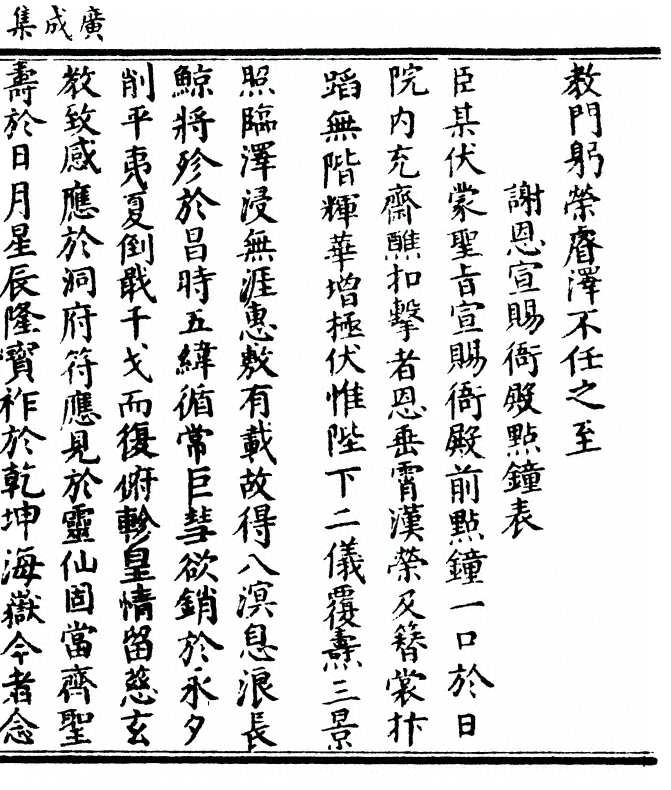 廣成集
教門躬榮睿澤不任之至
謝恩宣賜衙殿點鐘表
臣某伏蒙聖旨宣賜衙殿前點鐘一口於日
院内充齋醮扣擊者恩垂霄漢榮及簪裳抃
蹈無階輝華增極伏惟陛下二儀覆燾三景
照臨澤浸無涯惠敷有載故得八溟息浪長
鯨將殄於昌時五緯循常巨彗欲銷於永夕
削平夷夏倒戢干戈而復俯軫皇情留慈玄
教致感應於洞府符應見於靈仙固當齊聖
壽於日月星辰隆寳祚於乾坤海嶽今者念